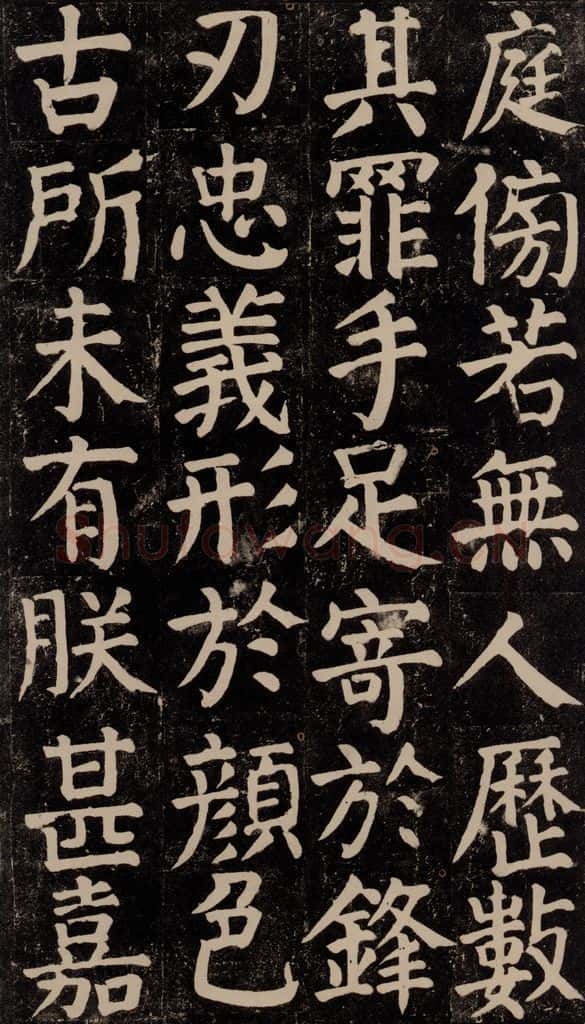 庭傍若無人歷數
其罪手足寄於鋒
刃忠義形於顏色
古所未有朕甚嘉